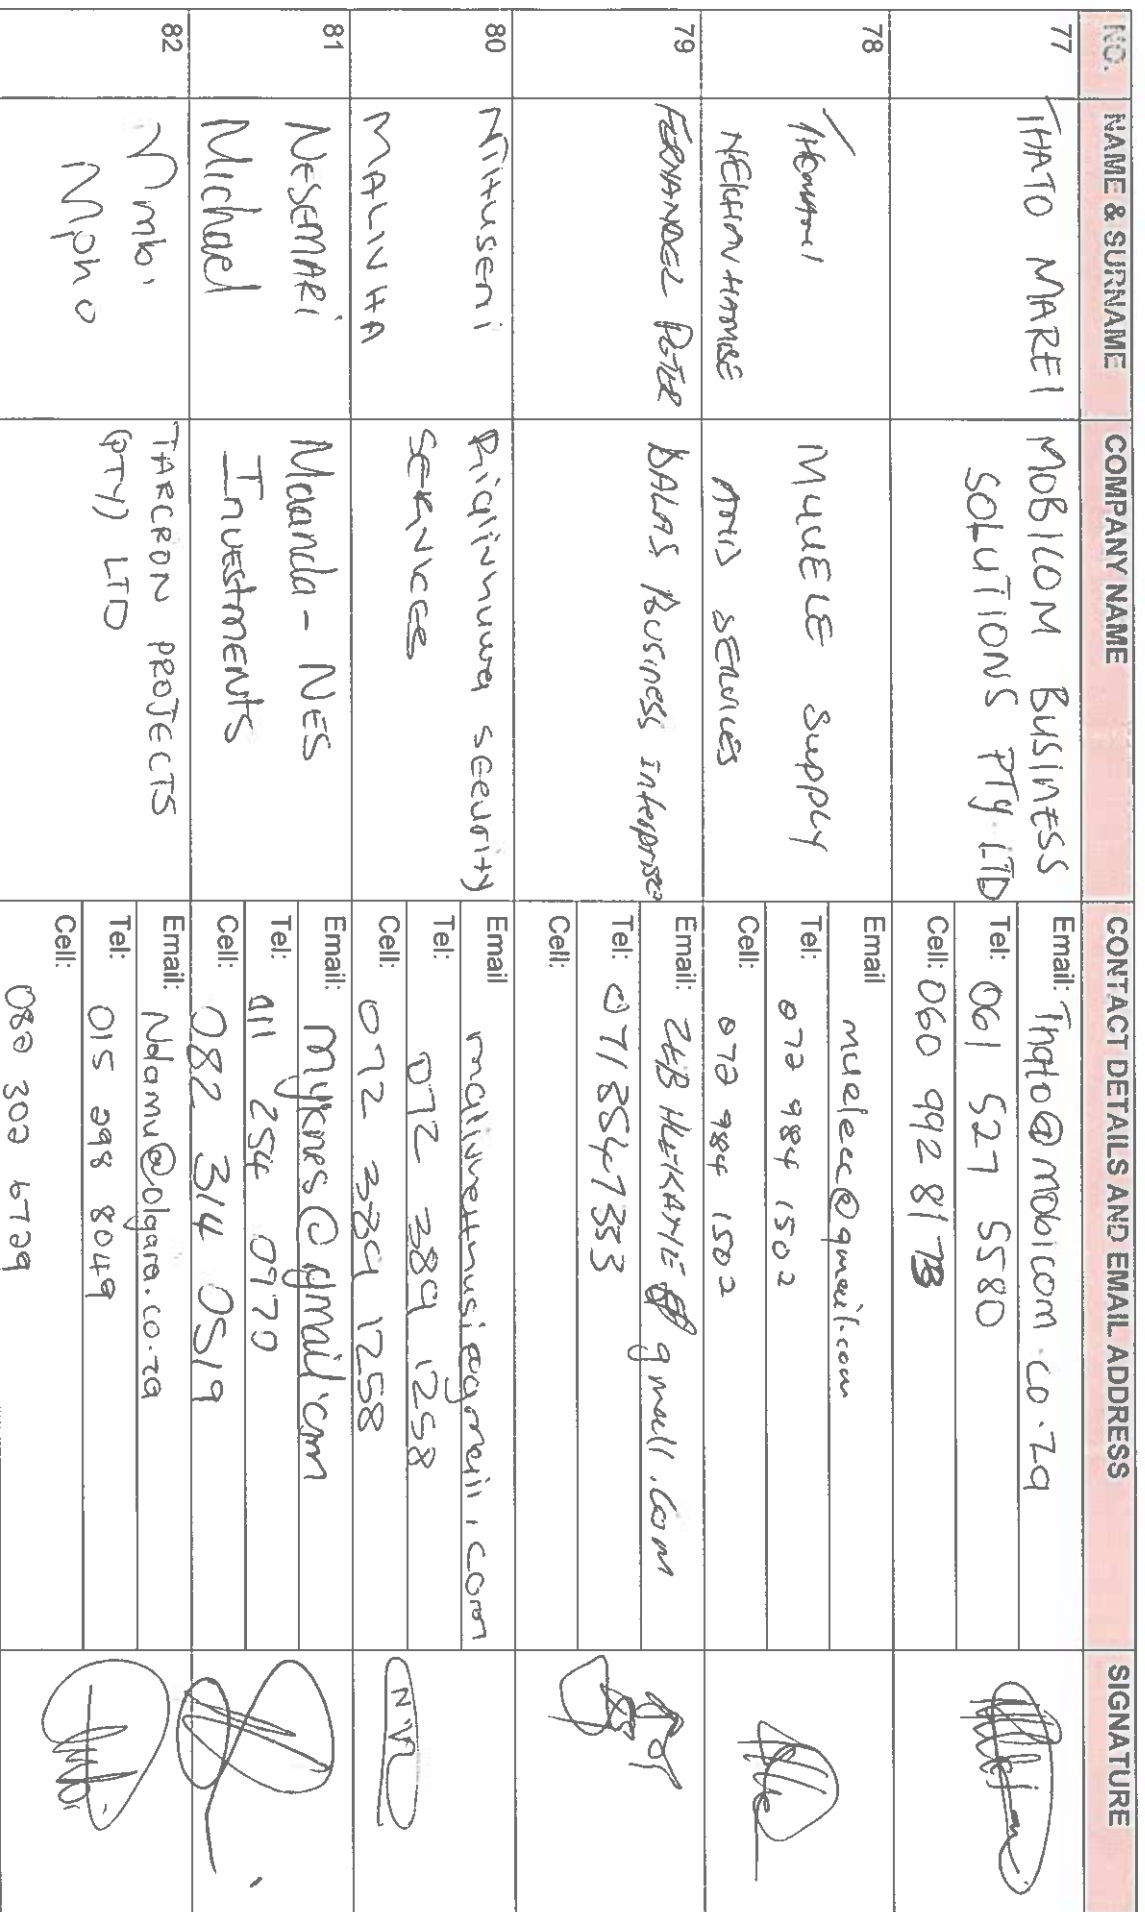 NO. NAME & SURNAME COMPANY NAME CONTACT DETAILS AND EMAIL ADDRESS SIGNATURE
77
THATO MAREI
MOBICOM BUSINESS
SOLUTIONS PTY LTD
Email: Thato@mobicom.co.za
Tel: 061 527 5580
Cell: 060 992 81
78
MUUELE Supply
AND SERVICES
Email muelecc@gmail.com
Tel: 072 984 1502
Cell: 072 984 1502
79
FERNANDEZ PETER
BALAS Business Interprise
Email: gmail.com
Tel: 071 854 7353
Cell:
80
Nithuseni
MALIVHA
security
SERVICES
Email
Tel: 072 389 1258
Cell: 072 389 1258
81
NESEMARI
Michael
Maanda-NES
Investments
Email: myknes@gmail.com
Tel: 011 254 0970
Cell: 082 314 0519
82
Mpho
TARCRON PROJECTS
(PTY) LTD
Email: Ndamu@olgara.co.za
Tel: 015 298 8049
Cell:
082 302 6729